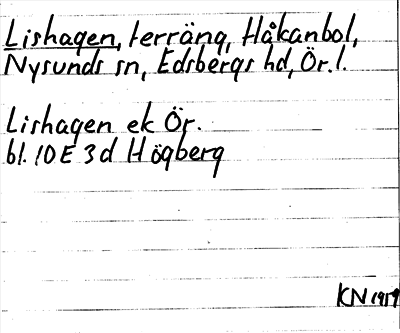 Lishagen, terräng, Håkanbol,
Nysunds sn, Edsbergs hd, Ör. l.
Lishagen ek Ör.
bl. 10E 3d Högberg
KN 1959